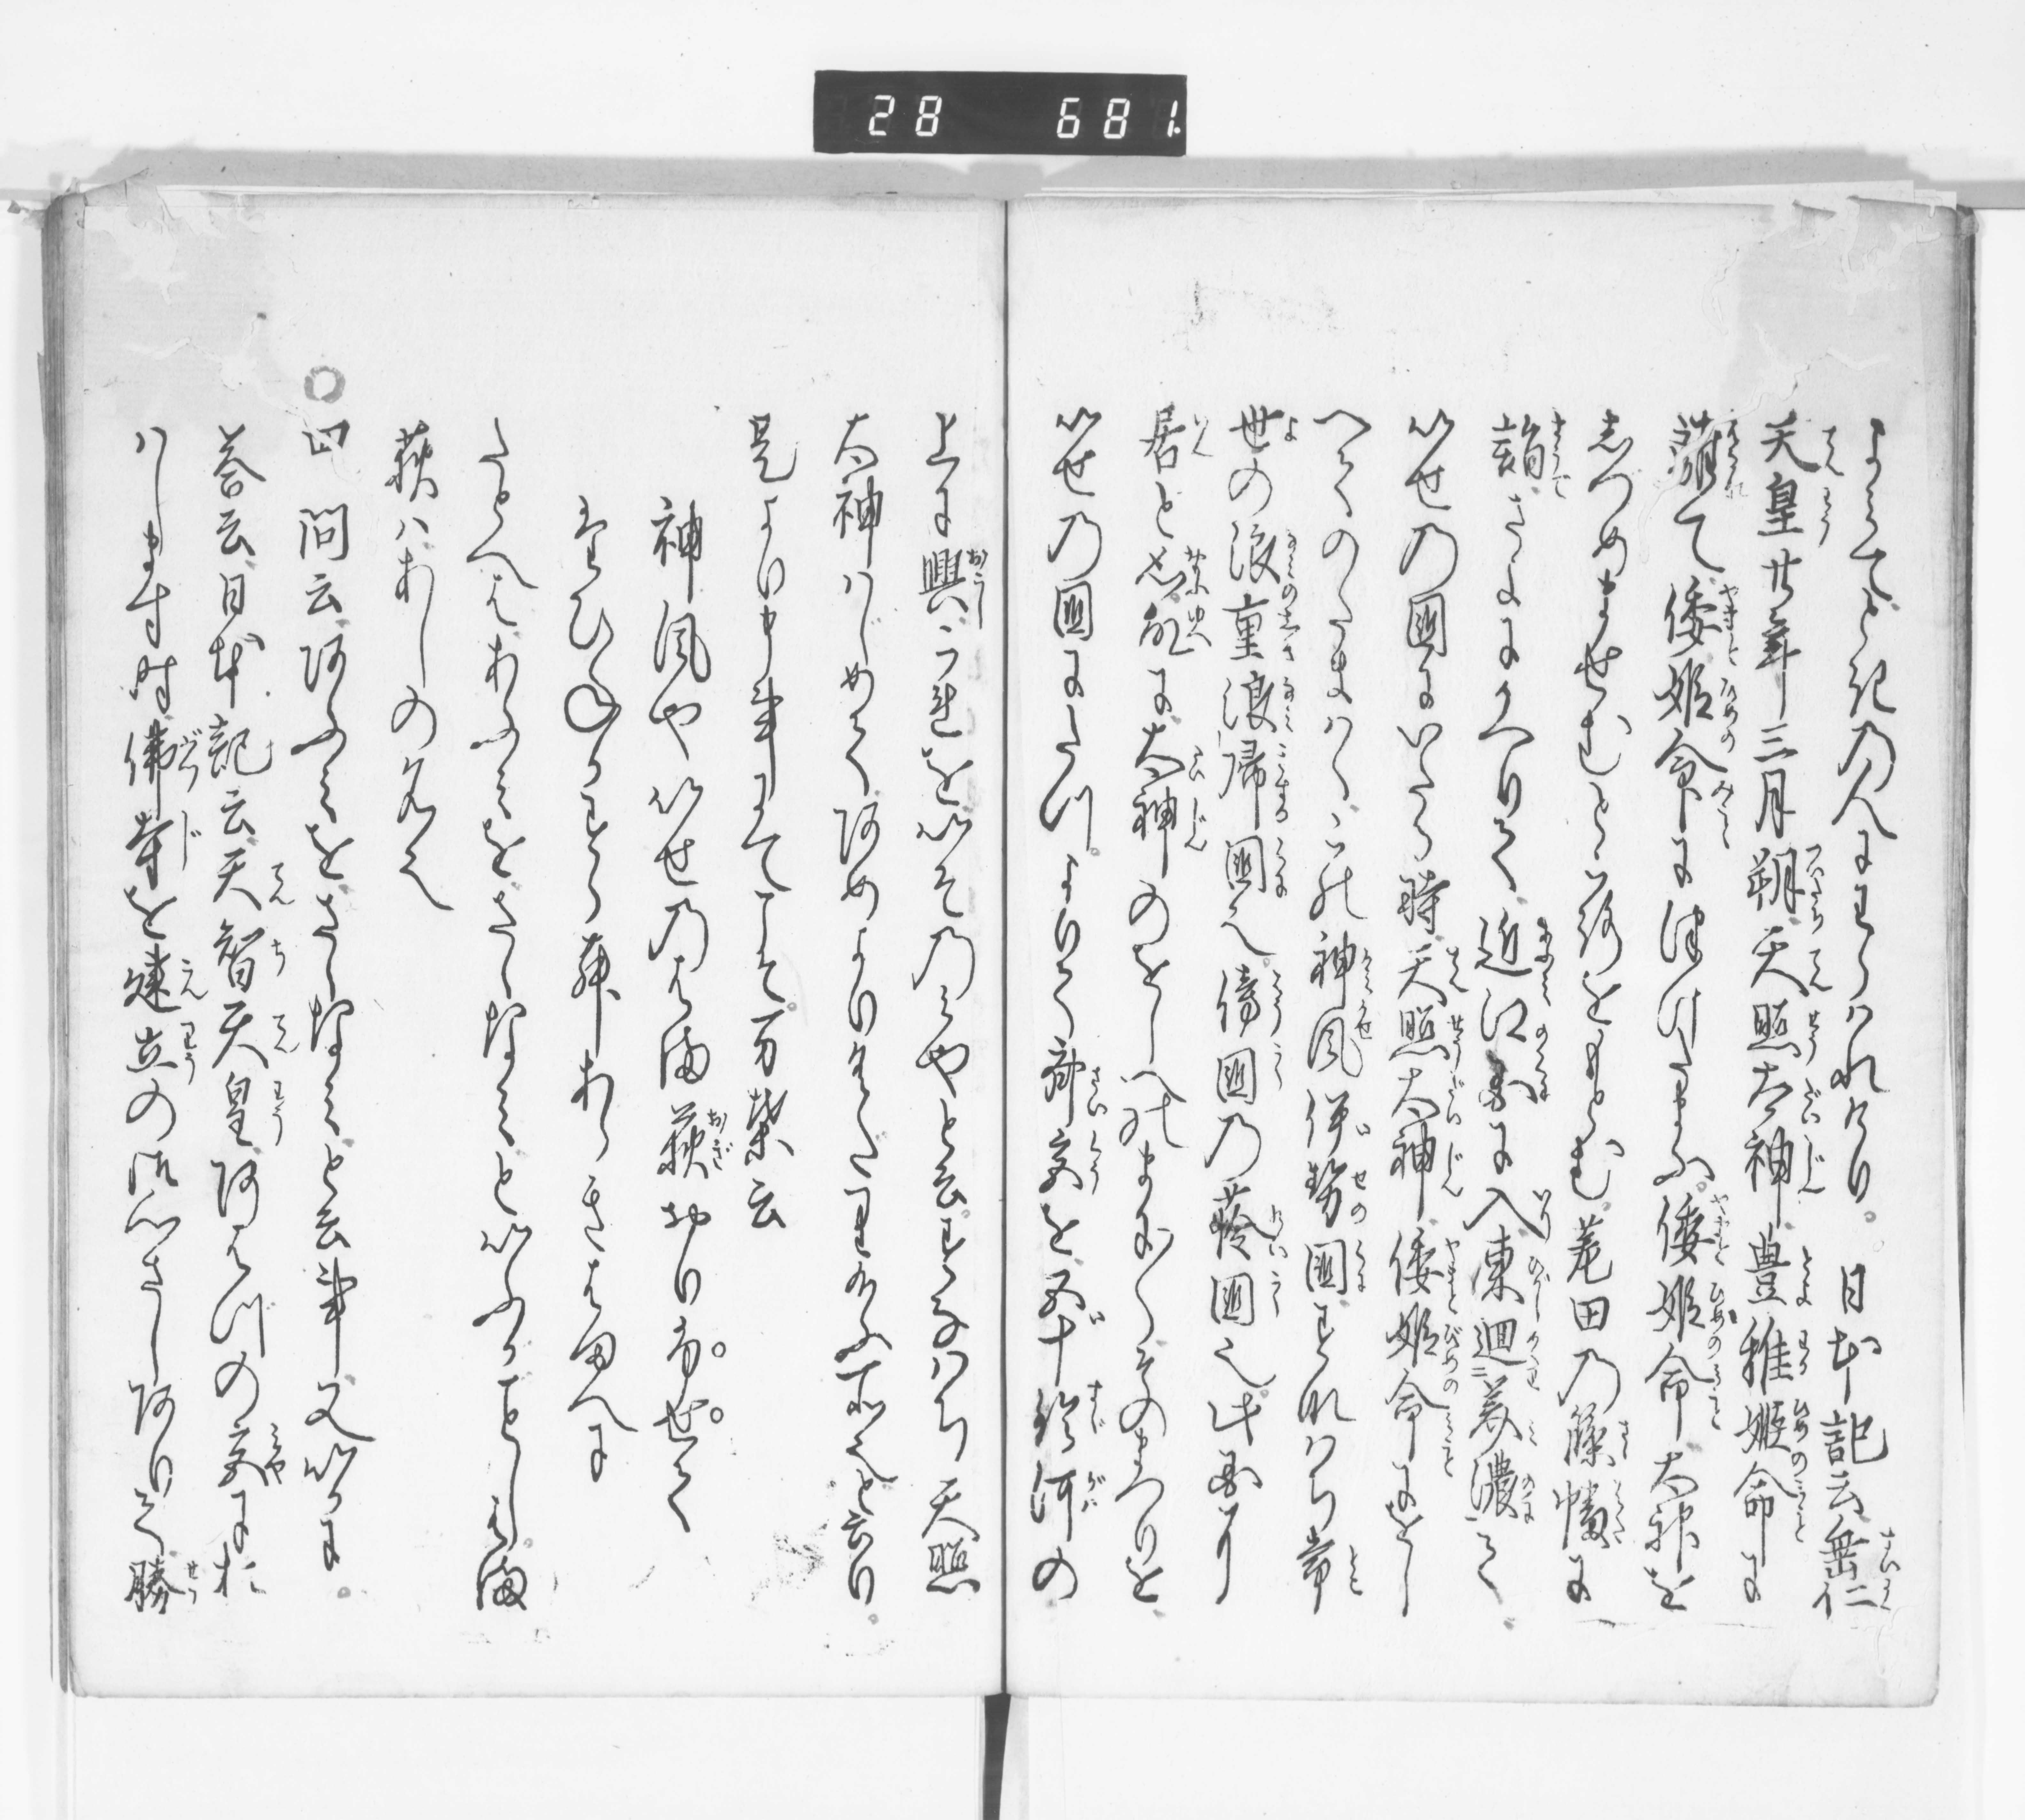 28 681
よみてと記乃人にわらはれけり。日本記云垂仁
天皇廿五年三月朔天照太神豊稚姫命に
離て倭姫命に津けたまふ。倭姫命太神を
しづめませむところをもとむ菟田乃篠幡に
詣さらにかへりて近江国に入東廻美濃て
いせ乃国にいたる時天照太神倭姫命にをし
へてのたまはくこれ神風伊勢国すなはち常
世の浪重浪帰国也傍国乃 国也此国に
居と に太神のをしへのまにまにそのまつりを
いせ乃国にたつよりて斎宮を五十鈴河の
上に興これをいそ乃みやと云すなはち天照
太神はじめてあめよりくたります所也と云り
是より申事にてこそ万葉云
神風やいせ乃はま荻おりふせて
たひねやすらむあらきはまへに
たとへはあふみをさゝなみといふかことしはま
荻はあしの名也
四 問云あふみをさゝなみと云事又いかに
答云日本記云天智天皇あふみの宮にお
はします時佛寺を建立の御心さしありて勝